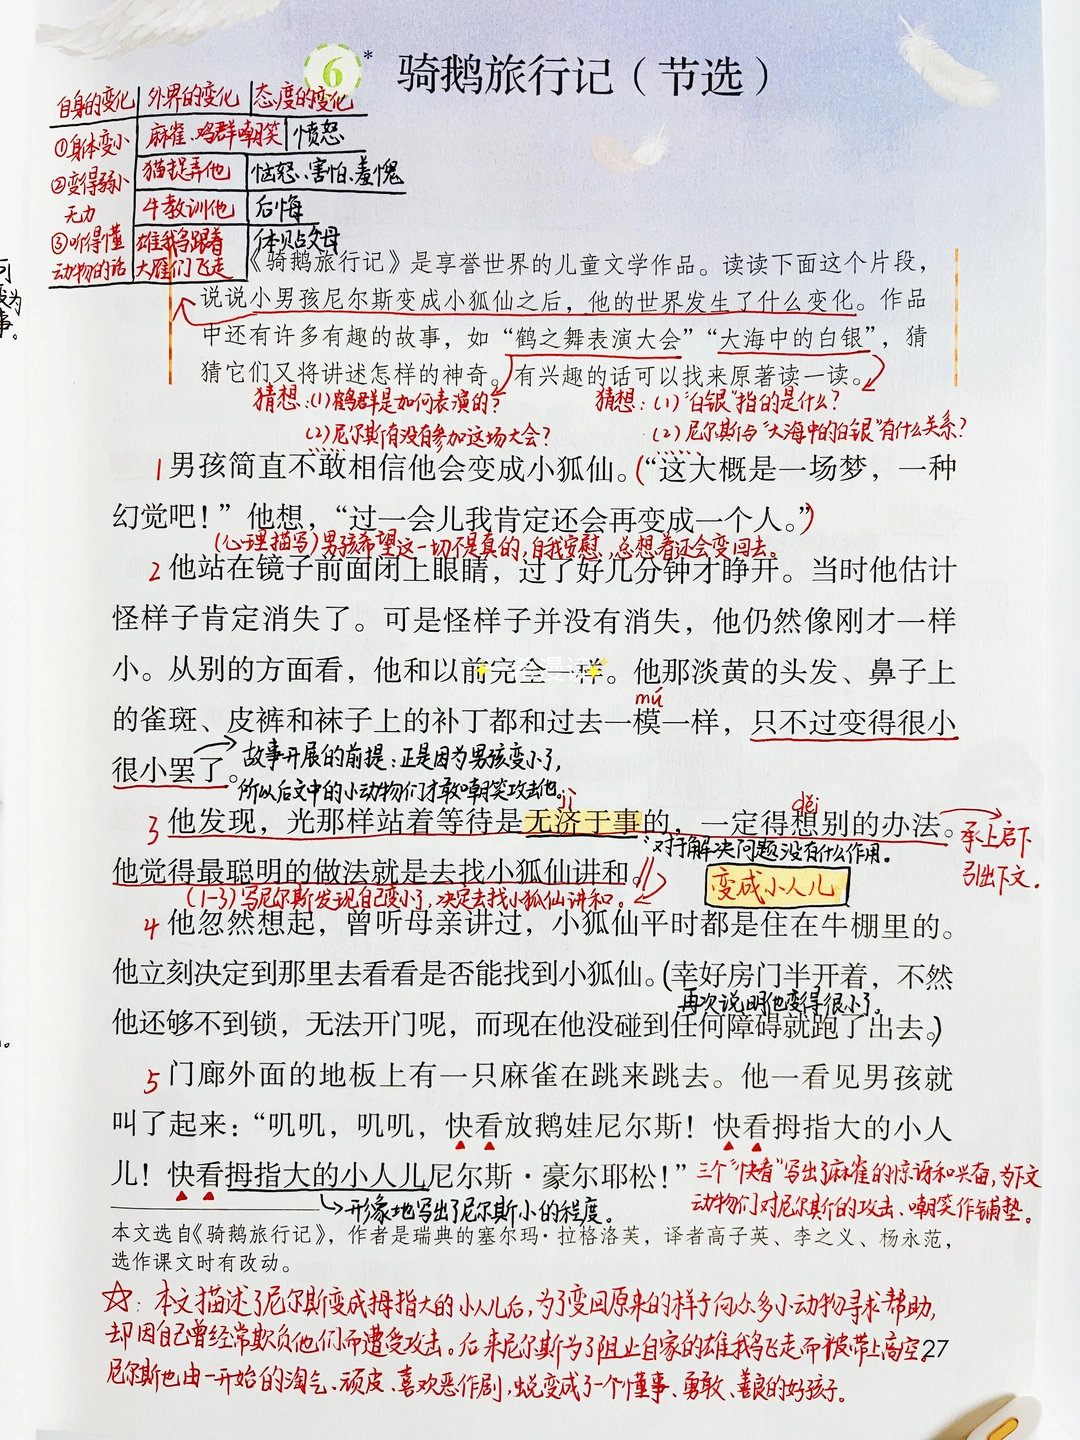 6* 骑鹅旅行记（节选）
自身的变化 外界的变化 态度的变化
①身体变小 麻雀、鸡群嘲笑 愤怒
②变得弱小无力 猫捉弄他 恼怒、害怕、羞愧
牛教训他 后悔
③听得懂动物的话 雄鹅跟着大雁们飞走 体贴父母
《骑鹅旅行记》是享誉世界的儿童文学作品。读读下面这个片段，
说说小男孩尼尔斯变成小狐仙之后，他的世界发生了什么变化。作品
中还有许多有趣的故事，如“鹤之舞表演大会”“大海中的白银”，猜
猜它们又将讲述怎样的神奇。有兴趣的话可以找来原著读一读。
猜想：(1)鹤群是如何表演的？
(2)尼尔斯有没有参加这场大会？
猜想：(1)“白银”指的是什么？
(2)尼尔斯与“大海中的白银”有什么关系？
1 男孩简直不敢相信他会变成小狐仙。(“这大概是一场梦，一种
幻觉吧！”他想，“过一会儿我肯定还会再变成一个人。”)
(心理描写)男孩希望这一切不是真的，自我安慰，总想着还会变回去。
2 他站在镜子前面闭上眼睛，过了好几分钟才睁开。当时他估计
怪样子肯定消失了。可是怪样子并没有消失，他仍然像刚才一样
小。从别的方面看，他和以前完全一样。他那淡黄的头发、鼻子上
mú
的雀斑、皮裤和袜子上的补丁都和过去一模一样，只不过变得很小
很小罢了。
故事开展的前提：正是因为男孩变小了，
所以后文中的小动物们才敢嘲笑攻击他。
jì děi
3 他发现，光那样站着等待是无济于事的，一定得想别的办法。
对于解决问题没有什么作用。
承上启下
引出下文.
他觉得最聪明的做法就是去找小狐仙讲和。
变成小人儿
(1-3)写尼尔斯发现自己变小了，决定去找小狐仙讲和。
4 他忽然想起，曾听母亲讲过，小狐仙平时都是住在牛棚里的。
他立刻决定到那里去看看是否能找到小狐仙。(幸好房门半开着，不然
再次说明他变得很小了。
他还够不到锁，无法开门呢，而现在他没碰到任何障碍就跑了出去。)
5 门廊外面的地板上有一只麻雀在跳来跳去。他一看见男孩就
叫了起来：“叽叽，叽叽，快看放鹅娃尼尔斯！快看拇指大的小人
儿！快看拇指大的小人儿尼尔斯·豪尔耶松！”
三个“快看”写出了麻雀的惊讶和兴奋，为下文
动物们对尼尔斯的攻击、嘲笑作铺垫。
形象地写出了尼尔斯小的程度。
本文选自《骑鹅旅行记》，作者是瑞典的塞尔玛·拉格洛芙，译者高子英、李之义、杨永范，
选作课文时有改动。
☆：本文描述了尼尔斯变成拇指大的小人儿后，为了变回原来的样子向众多小动物寻求帮助，
却因自己曾经常欺负他们而遭受攻击。后来尼尔斯为了阻止自家的雄鹅飞走而被带上高空。
27
尼尔斯也由一开始的淘气、顽皮、喜欢恶作剧，蜕变成了一个懂事、勇敢、善良的好孩子。